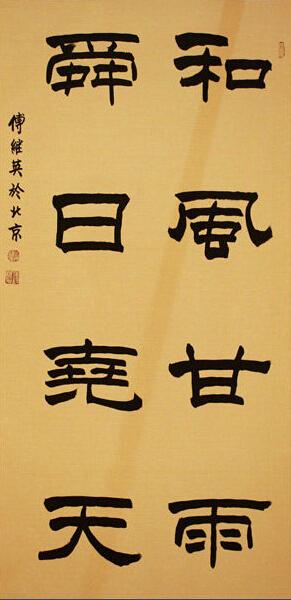 和風甘雨
舜日堯天
傅繼英於北京